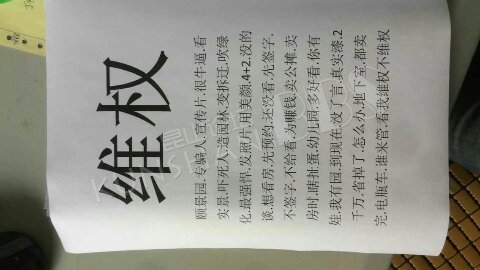 维权
颐景园.专骗人.宣传片.很牛逼.看
实景.吓死人.造园林.变拆迁.吹绿
化.最强悍.发照片.用美颜.4+2.没的
谈.想看房.先预约.还没看.先签字.
不签字.不给看.为赚钱.卖公摊.卖
房时.瞎扯蛋.幼儿园.多好看.你有
娃.我有园.到现在.没了言.真实漆.2
千万.省掉了.怎么办.地下室.都卖
完.电瓶车.谁来管.看我维权不维权